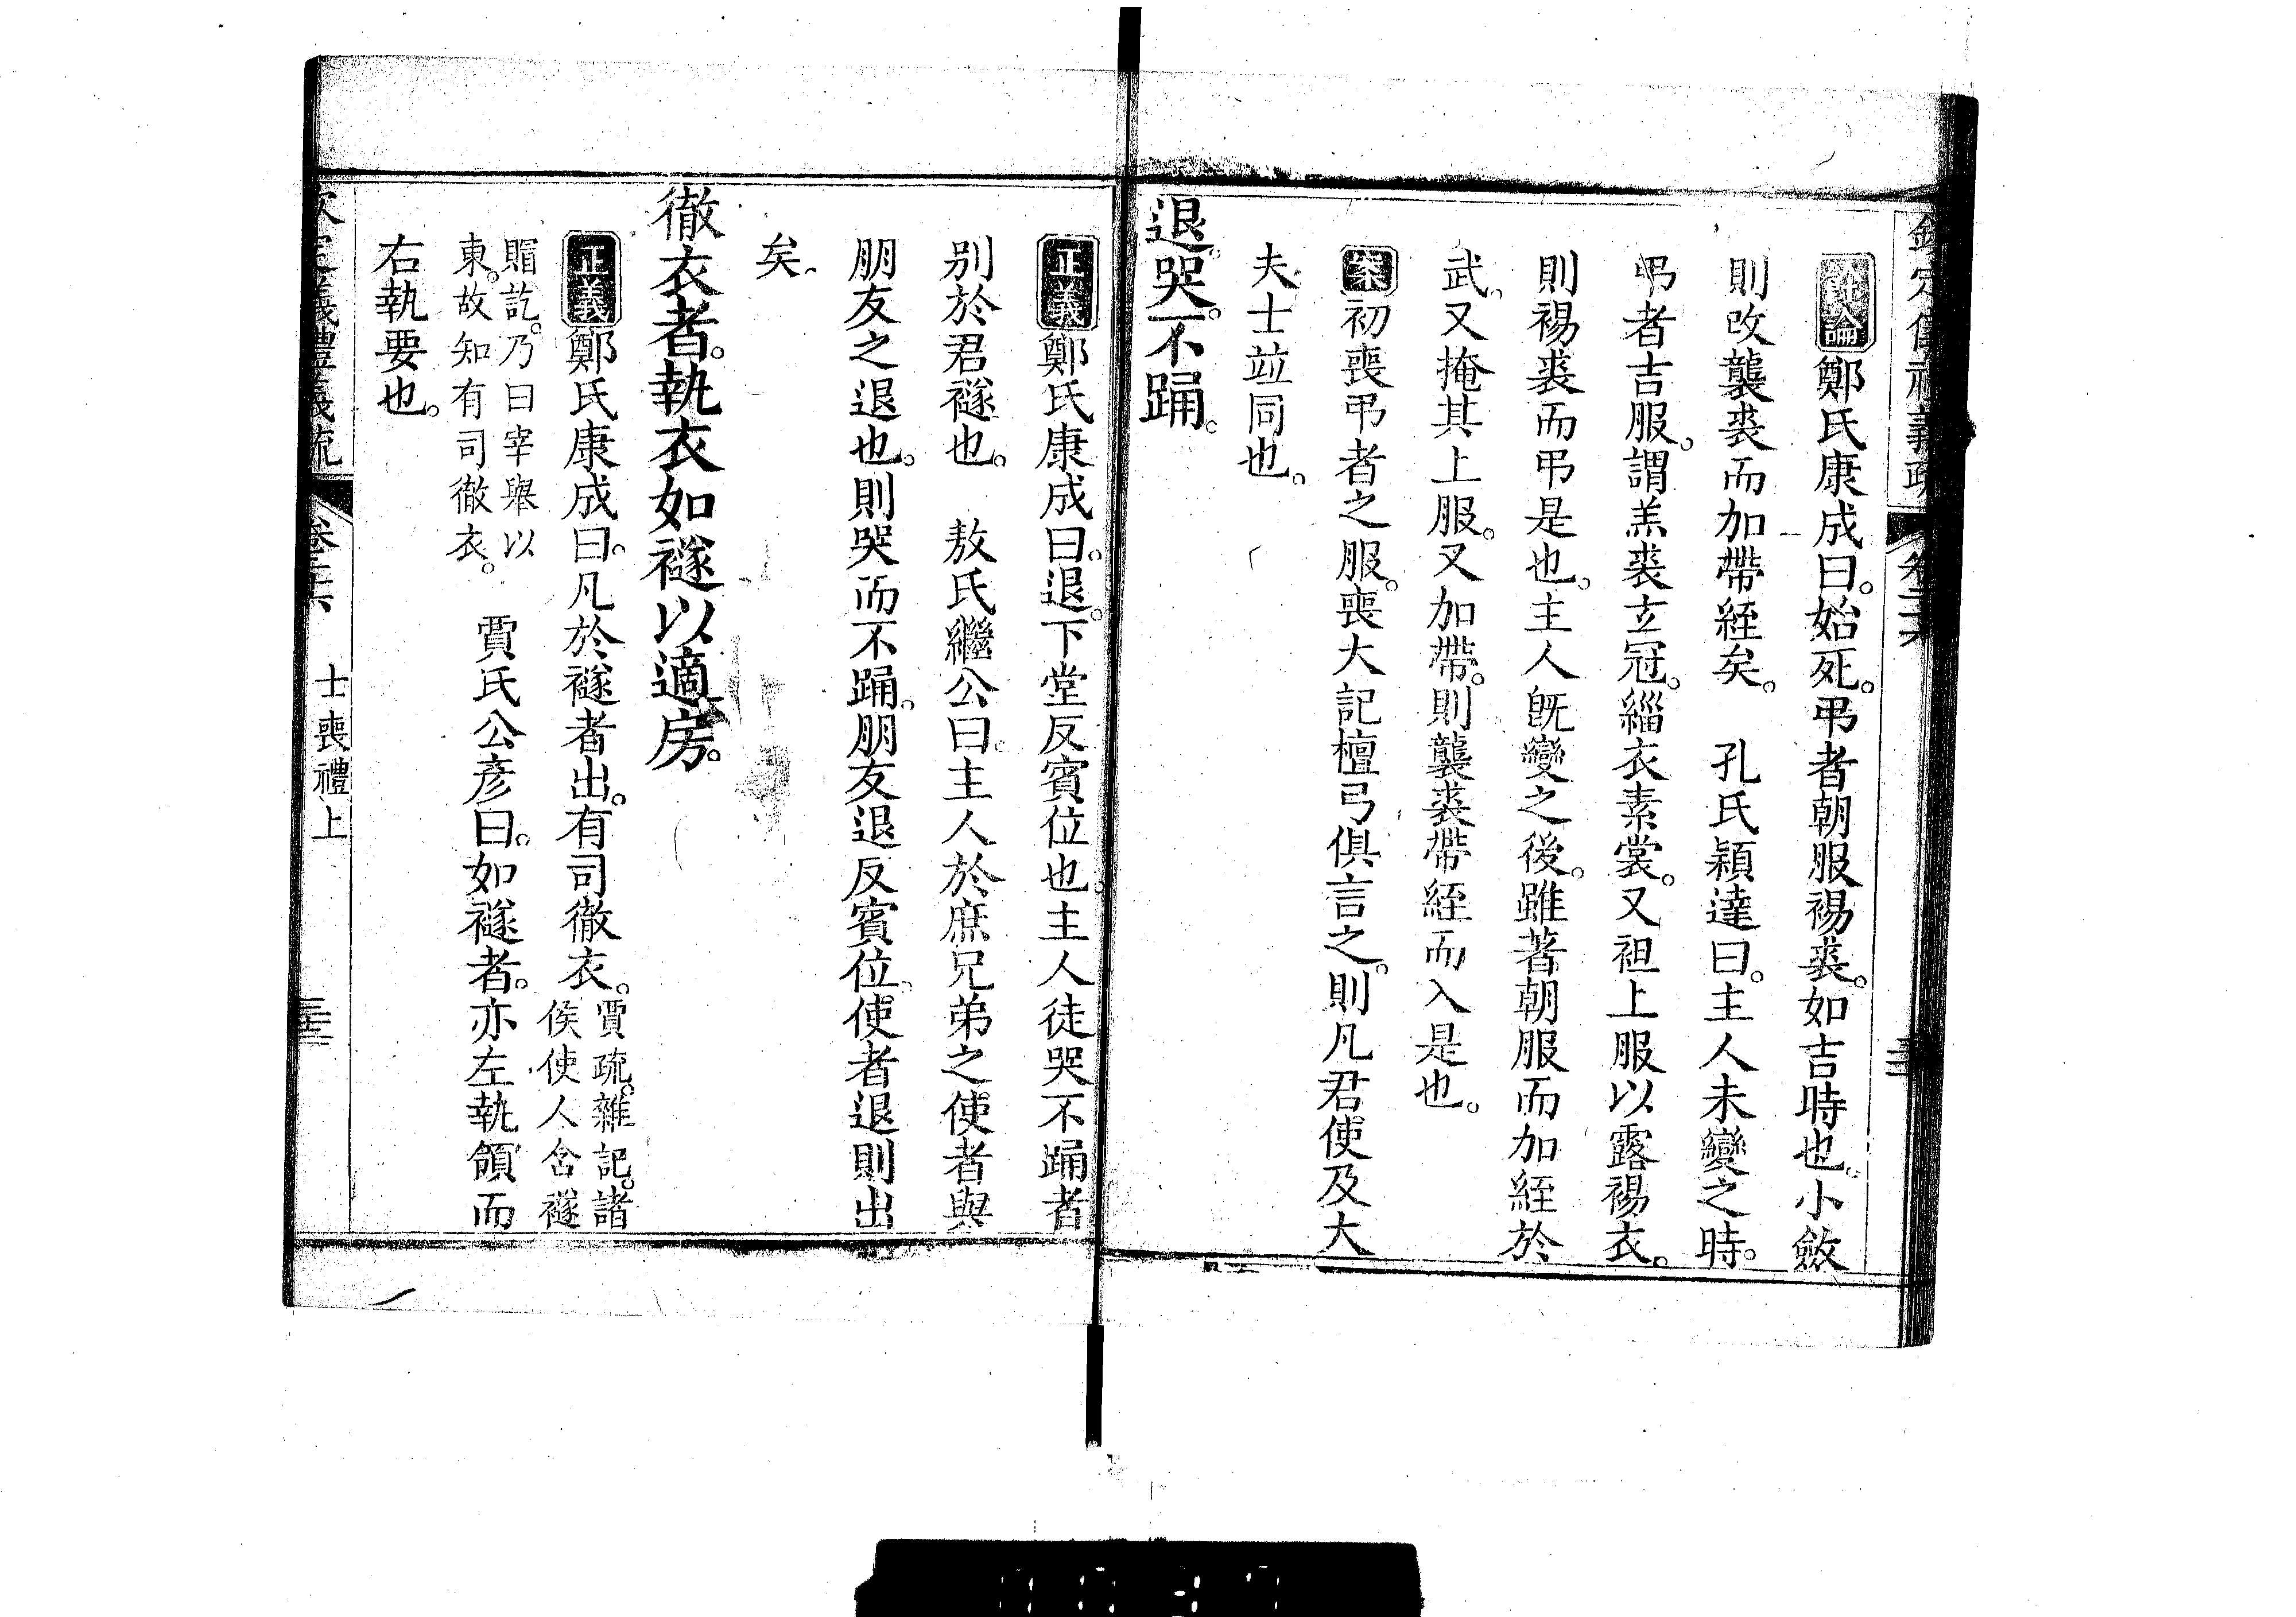 欽定儀禮義疏 卷二十六
論鄭氏康成曰。始死。弔者朝服裼裘。如吉時也。小斂
則改襲裘而加帶絰矣。 孔氏穎達曰。主人未變之時。
弔者吉服。謂羔裘玄冠。緇衣素裳。又袒上服以露裼衣。
則裼裘而弔是也。主人旣變之後。雖著朝服而加絰於
武。又掩其上服。又加帶。則襲裘帶絰而入是也。
案初喪弔者之服。喪大記檀弓俱言之。則凡君使及大
夫士竝同也。
退。哭。不踊。
正義鄭氏康成曰。退。下堂反賓位也。主人徒哭不踊者
別於君襚也。 敖氏繼公曰。主人於庶兄弟之使者與
朋友之退也。則哭而不踊。朋友退反賓位。使者退則出
矣。
徹衣者。執衣如襚以適房。
正義鄭氏康成曰。凡於襚者出。有司徹衣。賈疏。雜記。諸
侯使人含襚
賵訖。乃曰宰舉以
東。故知有司徹衣。 賈氏公彥曰。如襚者。亦左執領而
右執要也。
欽定儀禮義疏 卷二十六 士喪禮上